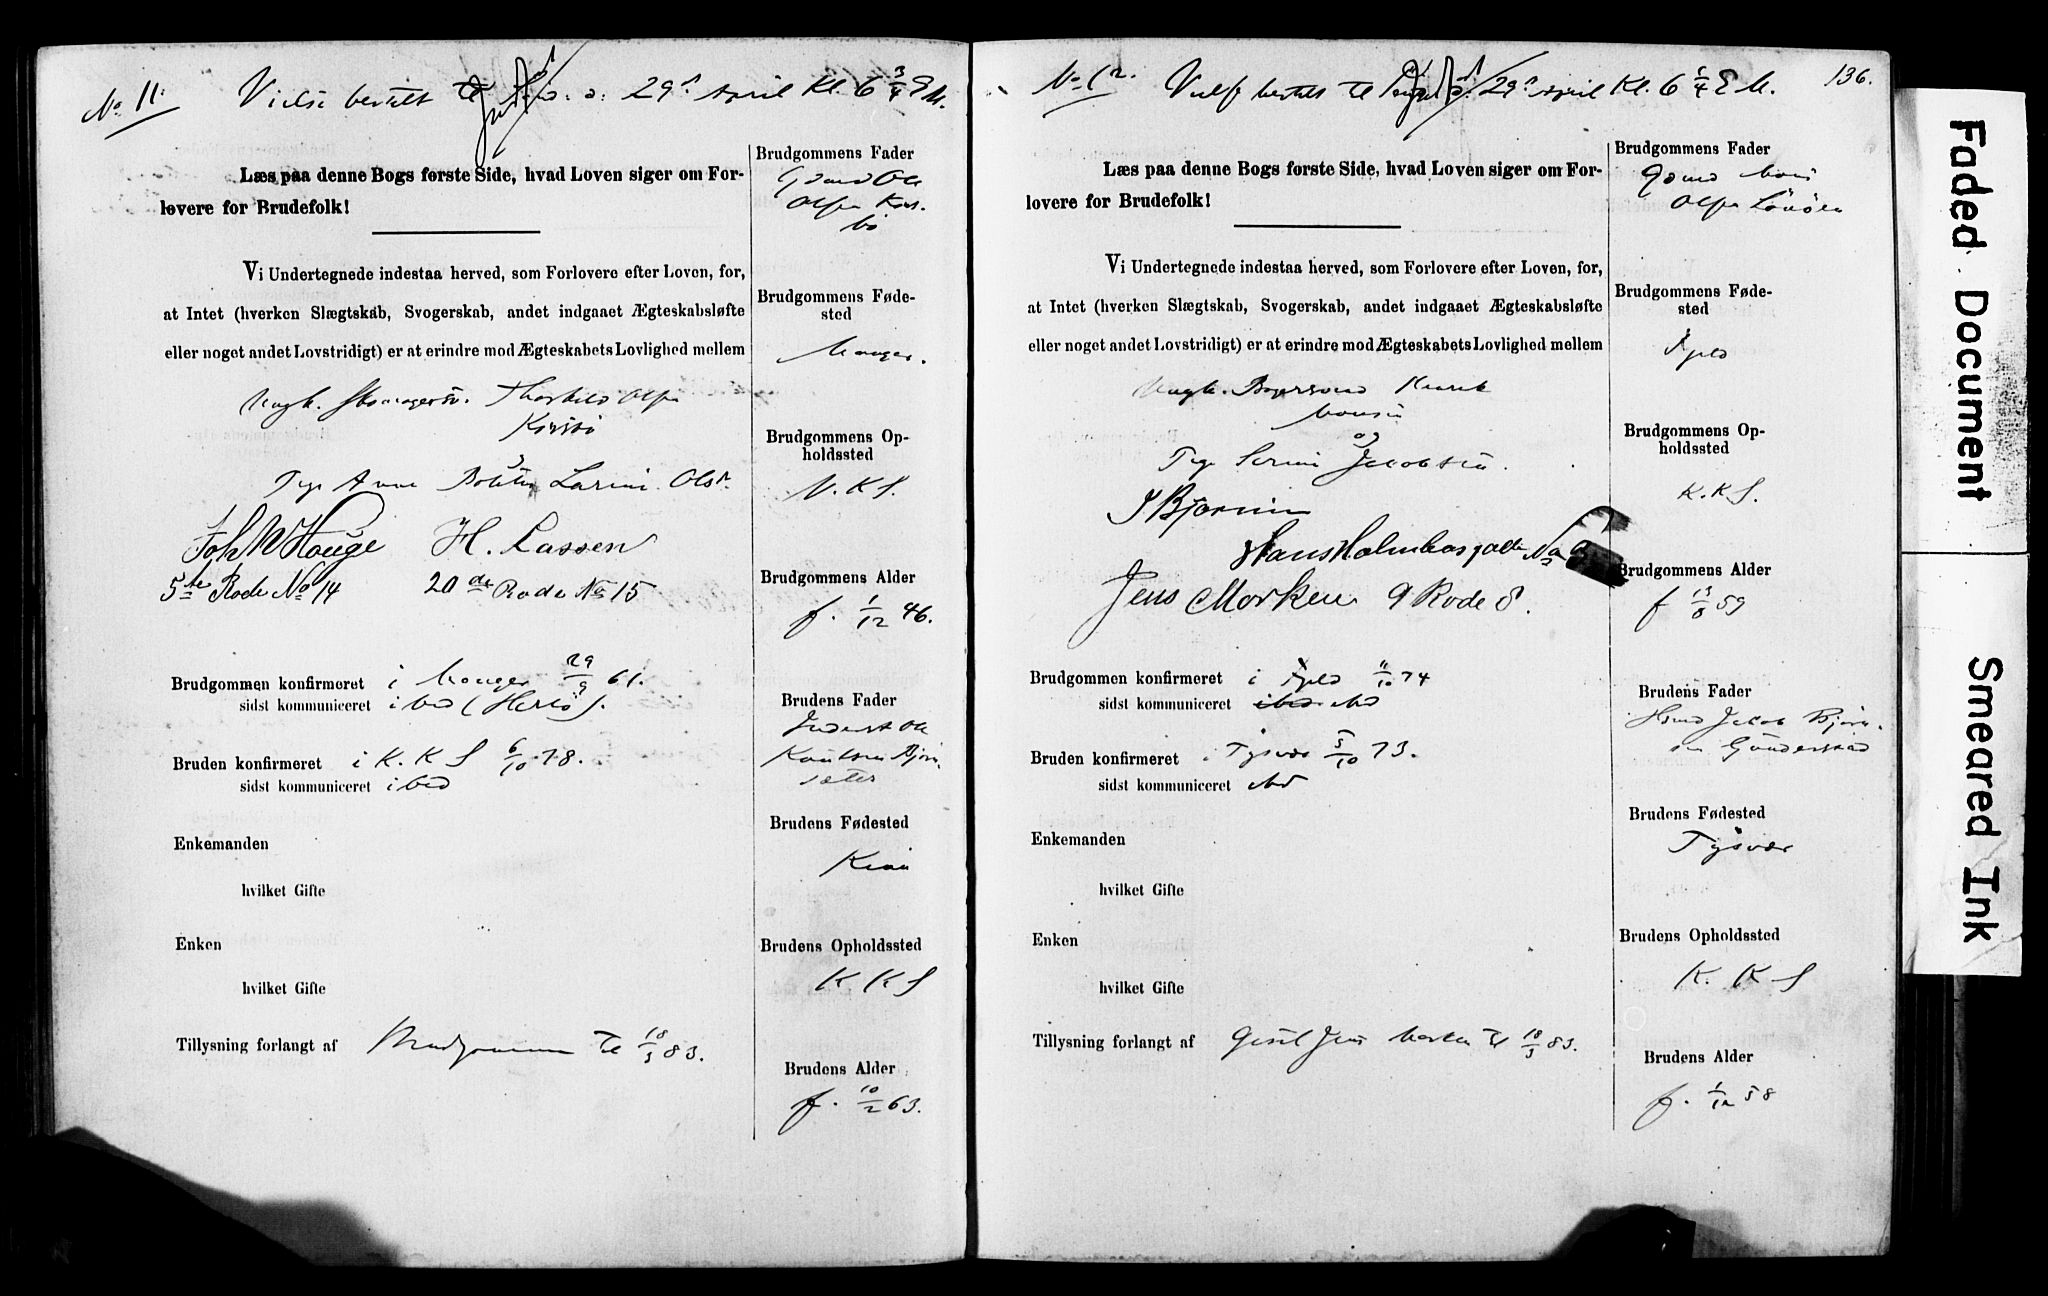 No 11.
Vielse bestilt til 29de April Kl. 6 3/4 E M.
Læs paa denne Bogs første Side, hvad Loven siger om For-
lovere for Brudefolk!
Vi Undertegnede indestaa herved, som Forlovere efter Loven, for,
at Intet (hverken Slægtskab, Svogerskab, andet indgaaet Ægteskabsløfte
eller noget andet Lovstridigt) er at erindre mod Ægteskabets Lovlighed mellem
Ungk. Skomagersv. Olsen
og
Pige Anne Larine Olsdr.
Joh W Hauge H. Lassen
5te Rode No 14 20de Rode No 15
Brudgommen konfirmeret i Manger 29/9 61.
sidst kommuniceret ibid (Herlø).
Bruden konfirmeret i K. K S 6/10 78.
sidst kommuniceret ibid
Enkemanden
hvilket Gifte
Enken
hvilket Gifte
Tillysning forlangt af Brudgommen til 18/3 83.
Brudgommens Fader
Gbmd Ole
Olsen
Brudgommens Føde-
sted
Manger.
Brudgommens Op-
holdssted
N. K S.
Brudgommens Alder
f. 1/12 46.
Brudens Fader
Inderst Ole
Knutsen Bjørn-
sæter
Brudens Fødested
Kinn
Brudens Opholdssted
K K S
Brudens Alder
f. 10/2 63.
136.
No 12.
Vielse bestilt til 29de April Kl. 6 1/4 E M.
Læs paa denne Bogs første Side, hvad Loven siger om For-
lovere for Brudefolk!
Vi Undertegnede indestaa herved, som Forlovere efter Loven, for,
at Intet (hverken Slægtskab, Svogerskab, andet indgaaet Ægteskabsløfte
eller noget andet Lovstridigt) er at erindre mod Ægteskabets Lovlighed mellem
Ungk. Bagersvend
Monsen
og
Pige Serine Jacobsen.
Hans Holmboesgade No
Jens Morken 9 Rode 8.
Brudgommen konfirmeret i 11/10 74
sidst kommuniceret ibid
Bruden konfirmeret i Tysvær 5/10 73.
sidst kommuniceret
Enkemanden
hvilket Gifte
Enken
hvilket Gifte
Tillysning forlangt af Gesel Jens Morken til 18/3 83.
Brudgommens Fader
Gbmd Mons
Olsen
Brudgommens Føde-
sted
Brudgommens Op-
holdssted
K. K S.
Brudgommens Alder
f 13/8 59
Brudens Fader
Hsmd Jacob Bjørn-
sen Gunderstad
Brudens Fødested
Tysvær
Brudens Opholdssted
K. K S
Brudens Alder
f. 1/12 58
Faded Document
Smeared Ink